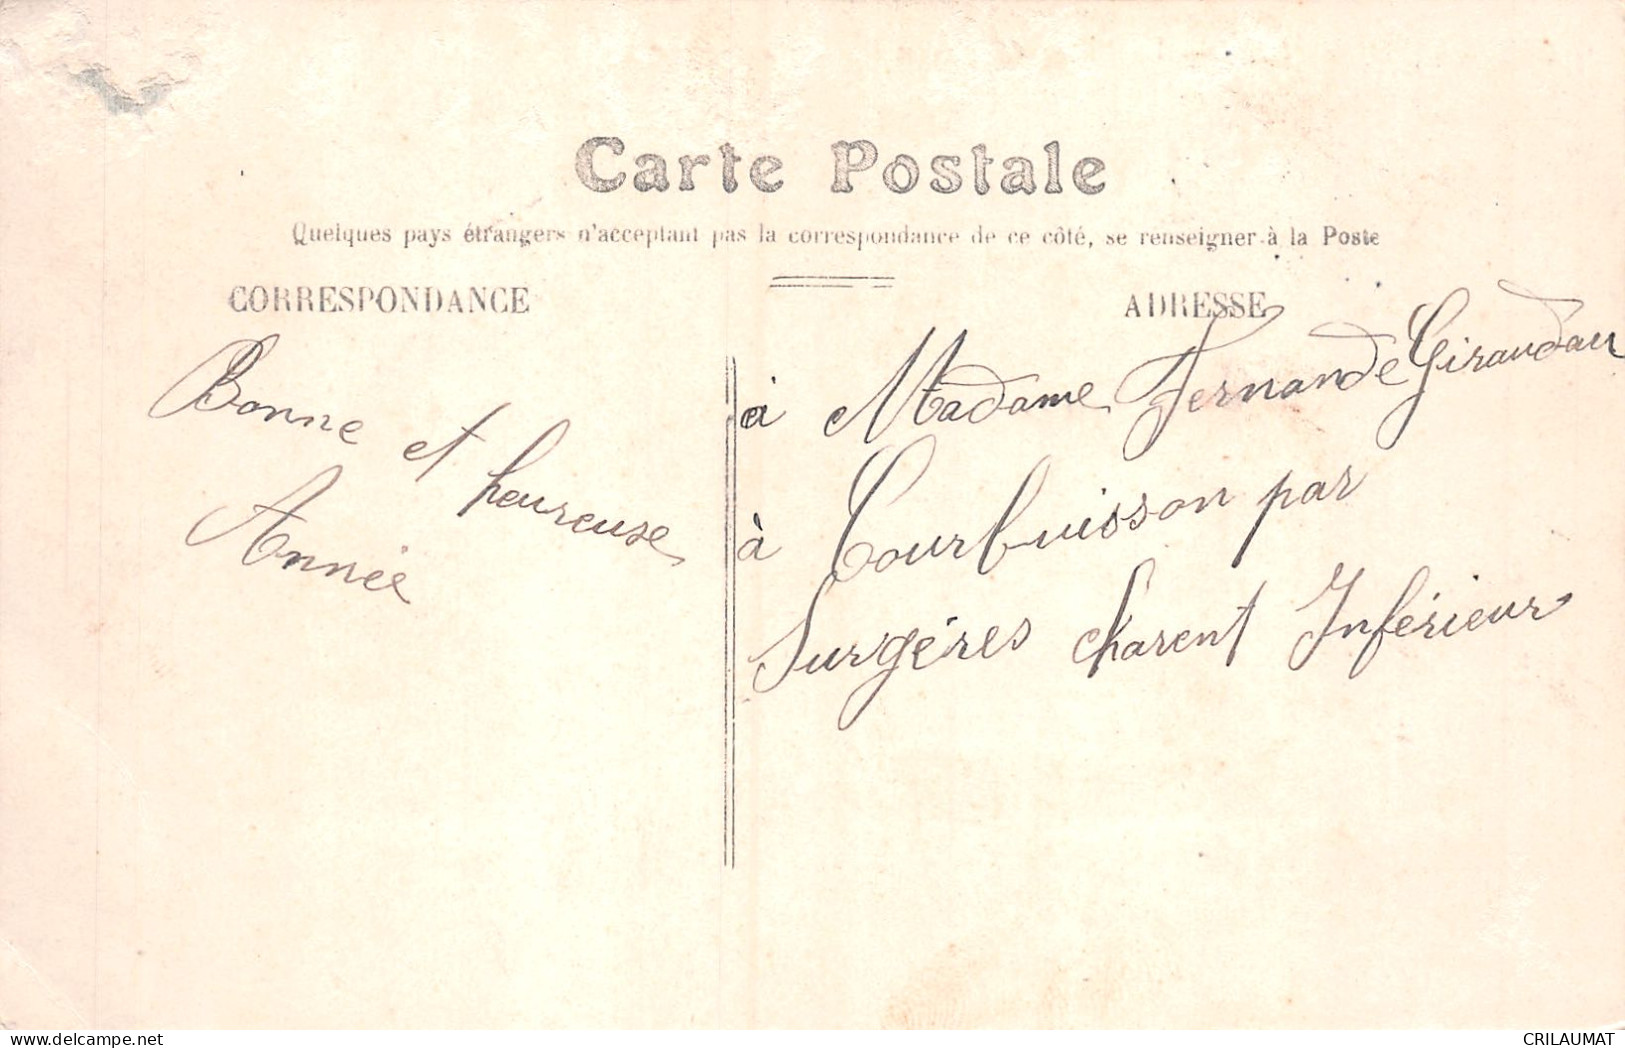 Carte Postale
Quelques pays étrangers n'acceptant pas la correspondance de ce côté, se renseigner à la Poste
CORRESPONDANCE
Bonne et heureuse
Année
ADRESSE
à Madame Fernande Giraudau
à Courbuisson par
Surgéres charent Inférieur
CRILAUMAT